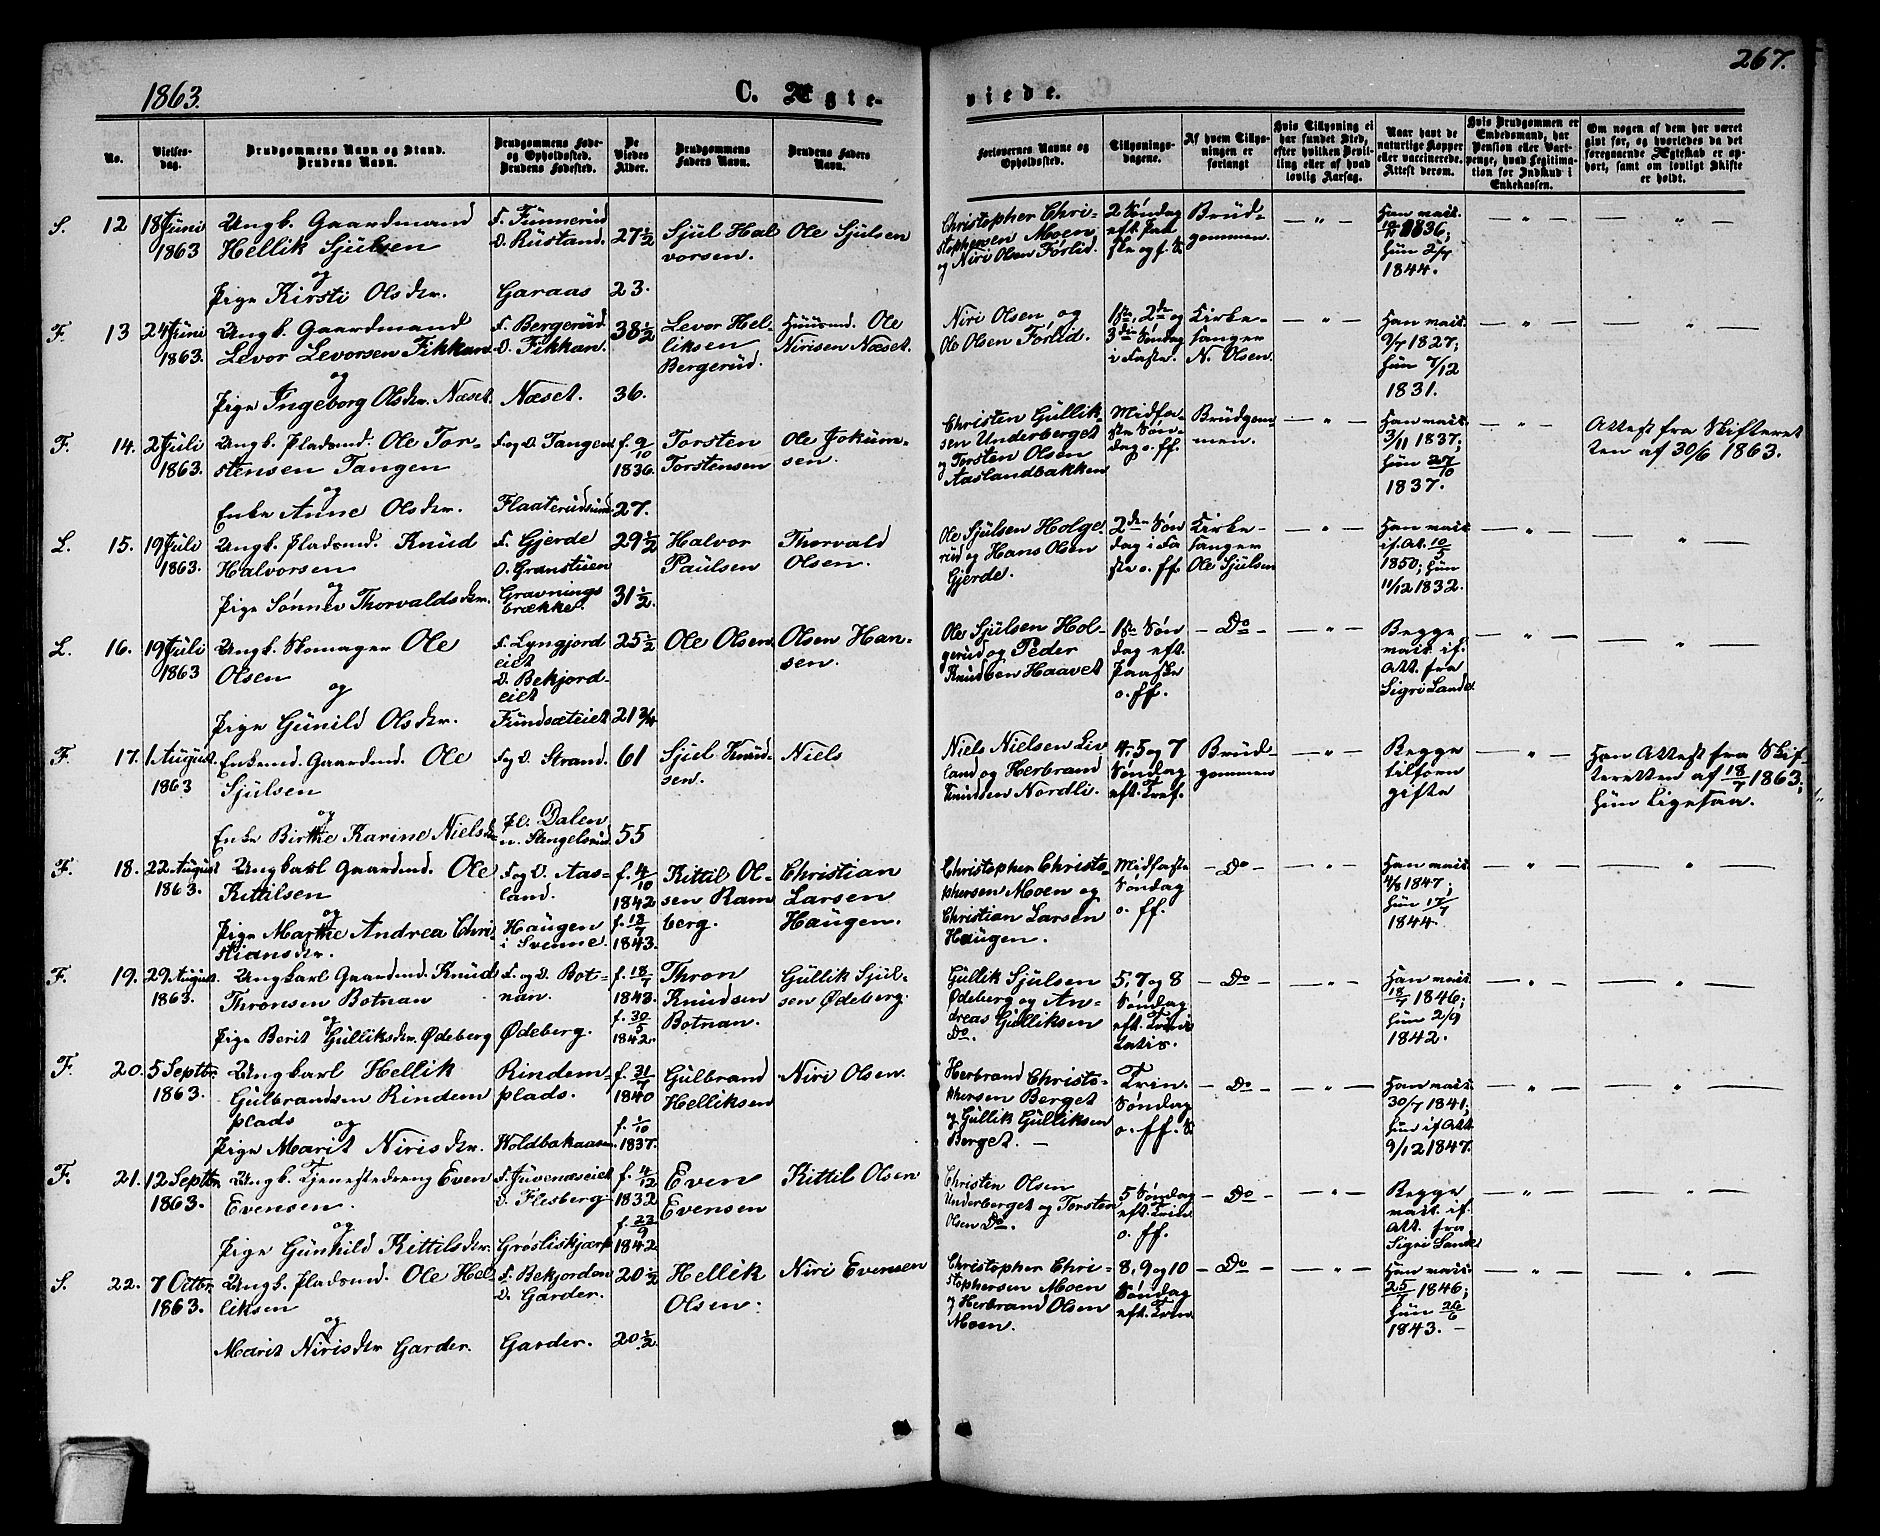 1863.
C. Ægte-
viede.
267.
No.
Vielses-
dag.
Brudgommens Navn og Stand.
Brudens Navn.
Brudgommens Føde-
og Opholdssted.
Brudens Fødested.
De
Viedes
Alder.
Brudgommens
Faders Navn.
Brudens Faders
Navn.
Forlovernes Navne og
Opholdssted.
Tillysnings-
dagene.
Af hvem Tillys-
ningen er
forlangt
Hvis Tillysning ei
har fundet Sted,
efter hvilken Bevil-
ling eller af hvad
lovlig Aarsag.
Naar havt de
naturlige Kopper
eller vaccinerede.
Attest derom.
Hvis Brudgommen er
Embedsmand, har
Pension eller Vart-
penge, hvad Legitima-
tion for Indskud i
Enkekassen.
Om nogen af dem har været
gift før, og hvorledes da det
foregaaende Ægteskab er op-
hørt, samt om lovligt Skifte
er holdt.
S. 12 18 Juni
1863
Ungk. Gaardmand
Hellik Sjulsen
og
Pige Kirsti Olsdtr.
F. Funnerud
O. Rustand.
Garaas
27 1/2
23.
Sjul Hal
vorsen.
Ole Sjulsen
Christopher Chri-
stophersen Moen
og Niri Olsen Førlid.
2 Søndag
eft. Paa
ske og f. S.
Brud-
gommen.
— " —
Han vacc.
1836;
hun 2/7
1844.
— " —
— " —
F. 13 24 Juni
1863.
Ungk. Gaardmand
Levor Levorsen Fikkan
og
Pige Ingeborg Olsdtr. Næset.
F. Bergerud
O. Fikkan.
Næset.
38 1/2
36.
Levor Hel-
liksen
Bergerud.
Huusmd. Ole
Nirisen Næset.
Niri Olsen og
Ole Olsen Førlid.
1ste, 2den og
3die Søndag
i Faste.
Kirke-
sanger
N. Olsen.
— " —
Han vacc.
9/7 1827;
hun 7/12
1831.
— " —
— " —
F. 14. 2 Juli
1863.
Ungk. Pladsmd. Ole Tor-
stensen Tangen
og
Enke Anne Olsdtr.
F. og O. Tangen
Flaaterudeiet
f. 9/10
1836
27.
Torsten
Torstensen
Ole Jokum-
sen.
Christen Gullik-
sen Underberget
og Torsten Olsen
Aaslandbakken
Midfa-
ste Søn-
dag o. ff.
Brudgom-
men.
— " —
Han vacc.
3/11 1837;
hun 27/10
1837.
— " —
Attest fra Skifteret
ten af 30/6 1863.
L. 15. 19 Juli
1863.
Ungk. Pladsmd. Knud
Halvorsen
og
Pige Sønnev Thorvaldsdtr.
F. Gjerde
O. Granstuen
Gravnings
brække.
29 1/2
31 1/2.
Halvor
Paulsen
Thorvald
Olsen.
Ole Sjulsen Holge
rud og Hans Olsen
Gjerde.
2den Søn
dag i Fa
ste o. ff.
Kirke-
sanger
Ole Sjulsen
— " —
Han vacc.
if. At. 10/5
1850; hun
11/12 1832.
— " —
— " —
L. 16. 19 Juli
1863
Ungk. Skomager Ole
Olsen
og
Pige Gunild Olsdtr.
F. Lyngjord
eiet
O. Bekjord-
eiet
Fundsæteiet
25 1/2
21 3/4
Ole Olsen
Olsen Han-
sen.
Ole Sjulsen Hol-
gerud og Peder
Knudsen Haavet
1ste Søn
dag eft.
Paaske
o. ff.
— Do —
— " —
Begge
vacc. if.
Att. fra
Sigri Lande
— " —
— " —
F. 17. 1 August
1863
Enkemd. Gaardmd. Ole
Sjulsen
og
Enke Birthe Karine Nielsdtr.
F. og O. Strand.
Pl. Dalen
u. Stengelsrud
61
55
Sjul Knud-
sen.
Niels
Niels Nielsen Liv
land og Herbrand
Knudsen Nordli.
4. 5 og 7
Søndag
eft. Tref.
Brud-
gommen
— " —
Begge
tilforn
gifte
— " —
Han Attest fra Skif-
teretten af 18/7 1863;
hun ligesaa.
F. 18. 22 August
1863.
Ungkarl Gaardmd. Ole
Kittilsen
og
Pige Marthe Andrea Chri-
stiansdtr.
F. og O. Aas-
land.
Haugen
i Svenne.
f. 4/10
1842
f. 18/7
1843.
Kittil Ol-
sen Ram
berg.
Christian
Larsen
Haugen.
Christopher Christo
phersen Moen og
Christian Larsen
Haugen.
Midfaste
Søndag
o. ff.
— Do —
— " —
Han vacc.
4/8 1847;
hun 17/7
1844.
— " —
— " —
F. 19. 29 August
1863.
Ungkarl Gaardmd. Knud
Thronsen Botnan
og
Pige Berit Gulliksdtr. Ødeberg
F. og O. Bot-
nan.
Ødeberg.
f. 18/7
1843.
f. 30/5
1842.
Thron
Knudsen
Botnan.
Gullik Sjul-
sen Ødeberg.
Gullik Sjulsen
Ødeberg og An-
dreas Gulliksen
Do.
5, 7 og 8
Søndag
eft. Trini
tatis.
— Do —
— " —
Han vacc.
18/7 1846;
hun 2/9
1842.
— " —
— " —
F. 20. 5 Septbr.
1863.
Ungkarl Hellik
Gulbrandsen Rindem
plads
og
Pige Marit Nirisdtr.
Rindem-
plads.
Koldbakaasen
f. 31/7
1840
f. 1/10
1837.
Gulbrand
Helliksen
Niri Olsen.
Herbrand Christo-
phersen Berget
og Gullik Gulliksen
Berget. —
Trin.
Søndag
o. ff. S
— Do —
— " —
Han vacc.
30/7 1841;
hun if. Att
9/12 1847.
— " —
— " —
F. 21. 12 Septbr.
1863.
Ungk. Tjenestedreng Even
Evensen.
og
Pige Gunhild Kittilsdtr.
F. Juvenæseiet
O. Flesberg
Grøsliskjærp
f. 4/12
1832
f. 23/9
1842
Even
Evensen
Kittil Olsen
Christen Olsen
Underberget og Torsten
Olsen Do.
5 Søndag
eft. Trin
o. ff.
— Do —
— " —
Begge
vacc. if.
Att. fra
Sigri Lande
— " —
— " —
S. 22. 7 Octbr.
1863.
Ungk. Pladsmd. Ole Hel-
liksen
og
Marit Nirisdtr Garder.
F. Bekjorden
O. Garder.
Garder.
20 1/2
20 1/2
Hellik
Olsen.
Niri Evensen
Christopher Chri-
stophersen Moen
og Herbrand Olsen
Moen.
8, 9 og 10
Søndag
eft. Trin
— Do —
— " —
Han vacc.
25/7 1846;
hun 26/6
1843. —
— " —
— " —